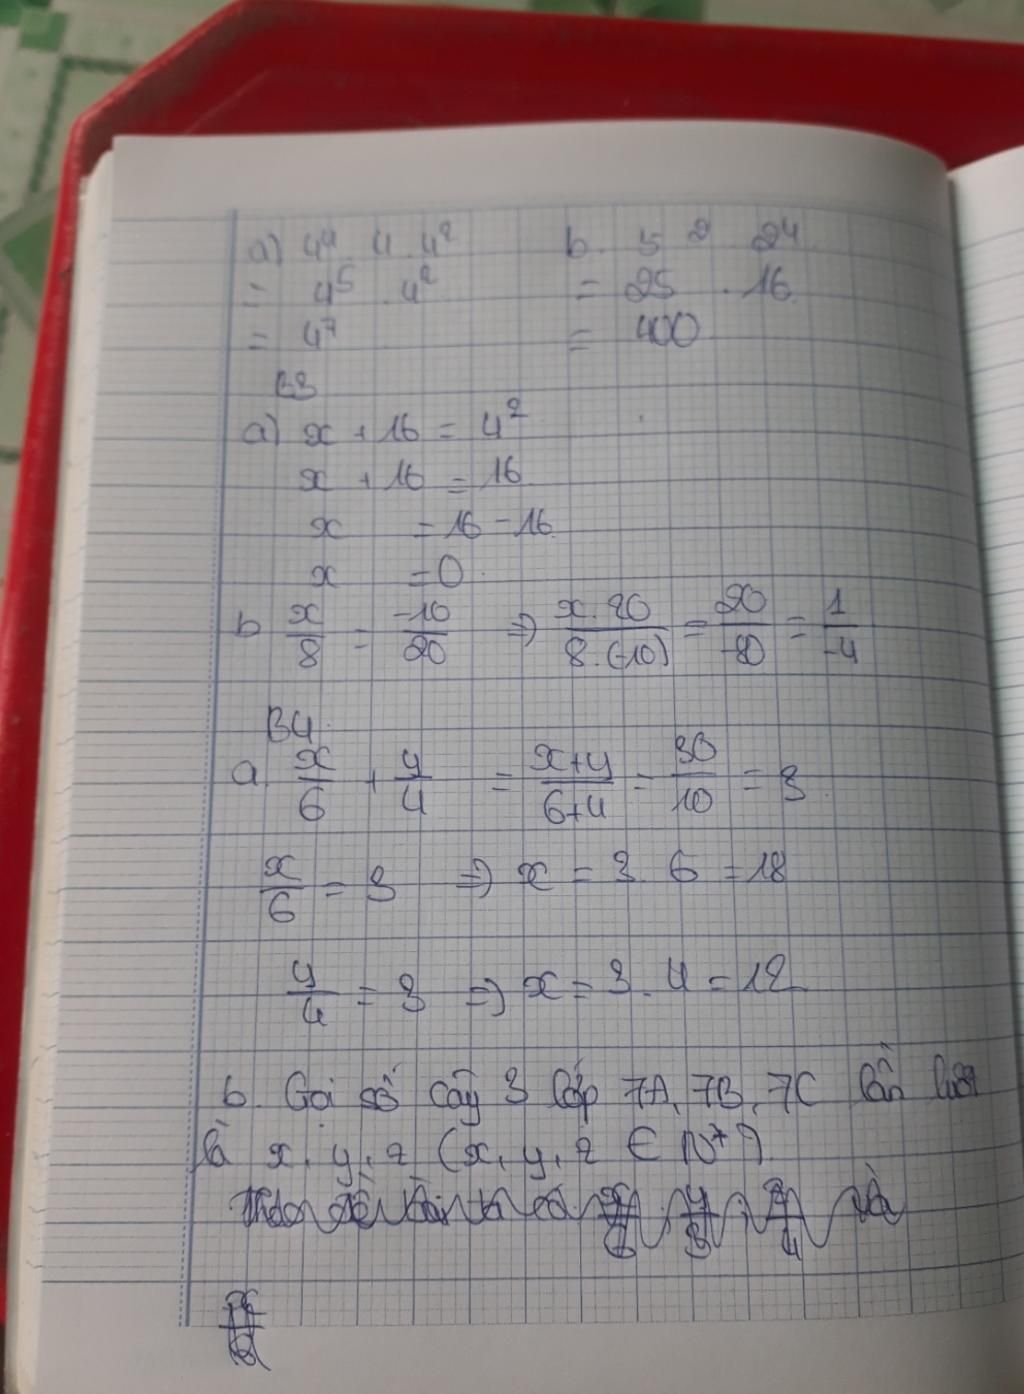 a) 4⁴. 4. 4² b. 5² 2⁴
= 4⁵ . 4² = 25 . 16
= 4⁷ = 400
B3
a) x + 16 = 4²
x + 16 = 16
x = 16 - 16
x = 0
b x/8 = -10/20 ⇒ x.20/8.(-10) = 20/-80 = 1/-4
B4.
a. x/6 + y/4 = x+y/6+4 = 30/10 = 3
x/6 = 3 ⇒ x = 3. 6 = 18
y/4 = 3 ⇒ x = 3. 4 = 12
b. Gọi số cây 3 lớp 7A, 7B, 7C lần lượt
là x, y, z (x, y, z ∈ N*).